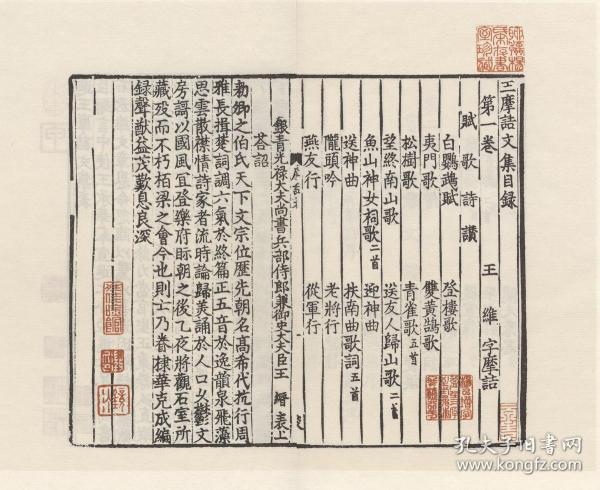 王摩詰文集目録
第一卷 王維字摩詰
賦歌詩讚
白鸚鵡賦 登樓歌
夷門歌 雙黃鵠歌
松樹歌 青雀歌五首
望終南山歌 送友人歸山歌二首
魚山神女祠歌二首 迎神曲
送神曲 扶南曲歌詞五首
隴頭吟 老將行
燕友行 從軍行
銀青光禄大夫尚書兵部侍郎兼御史大夫臣王 縉表上
荅詔
勑卿之伯氏天下文宗位歷先朝名髙希代抗行周
雅長揖楚詞調六氣於終篇正五音於逸韻泉飛藻
思雲散襟情詩家者流時論歸羙誦於人口久欝文
房謌以國風冝登樂府眎朝之後乙夜將觀石室所
藏殁而不朽栢梁之會今也則士乃眷棣華克成編
録聲猷益茂歎息良深
孔夫子旧書网
www.kongfz.com